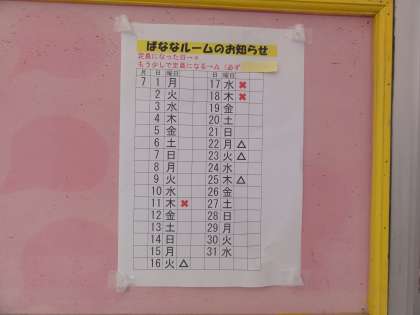 ばななルームのお知らせ
定員になった日→×
もう少しで定員になる→△（必ず
月 日 曜日 日 曜日
7 1 月 17 水 ×
2 火 18 木 ×
3 水 19 金
4 木 20 土
5 金 21 日
6 土 22 月 △
7 日 23 火 △
8 月 24 水
9 火 25 木 △
10 水 26 金
11 木 × 27 土
12 金 28 日
13 土 29 月
14 日 30 火
15 月 31 水
16 火 △